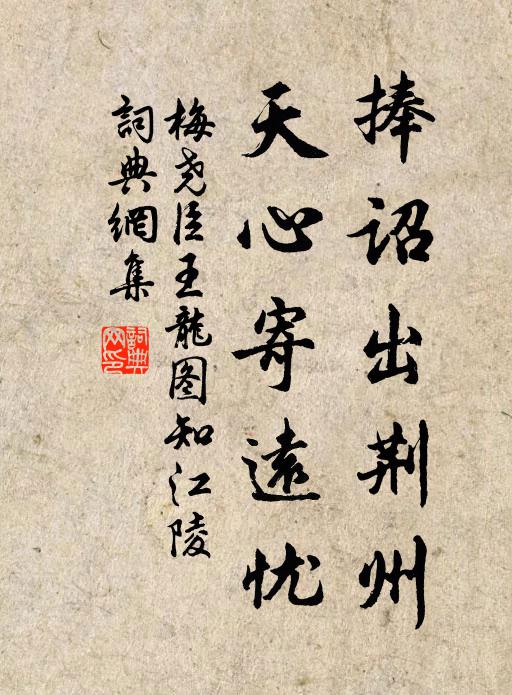 捧诏出荆州
天心寄遠忧
梅尧臣王龍图知江陵
詞典網集
詞典
网印